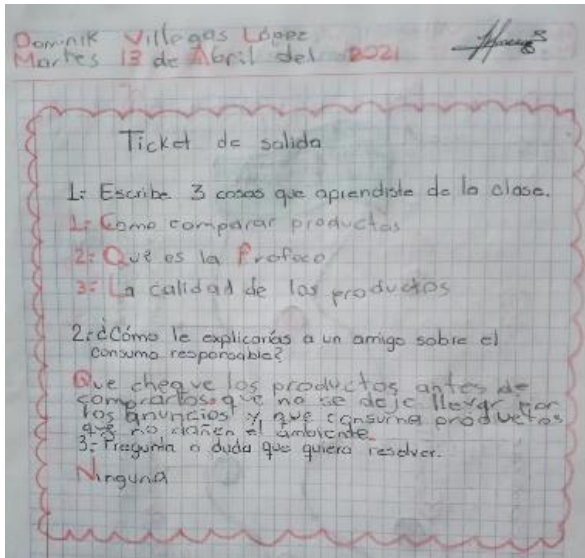 Dominik Villegas López
Martes 13 de Abril del 2021
Ticket de salida
1: Escribe 3 cosas que aprendiste de la clase.
1: Como comparar productos
2: Que es la Profeco
3: La calidad de los productos
2: ¿Cómo le explicarías a un amigo sobre el
consumo responsable?
Que cheque los productos antes de
comprarlos, que no se deje llevar por
los anuncios y que consuma productos
que no dañen el ambiente.
3: Pregunta o duda que quiera resolver.
Ninguna